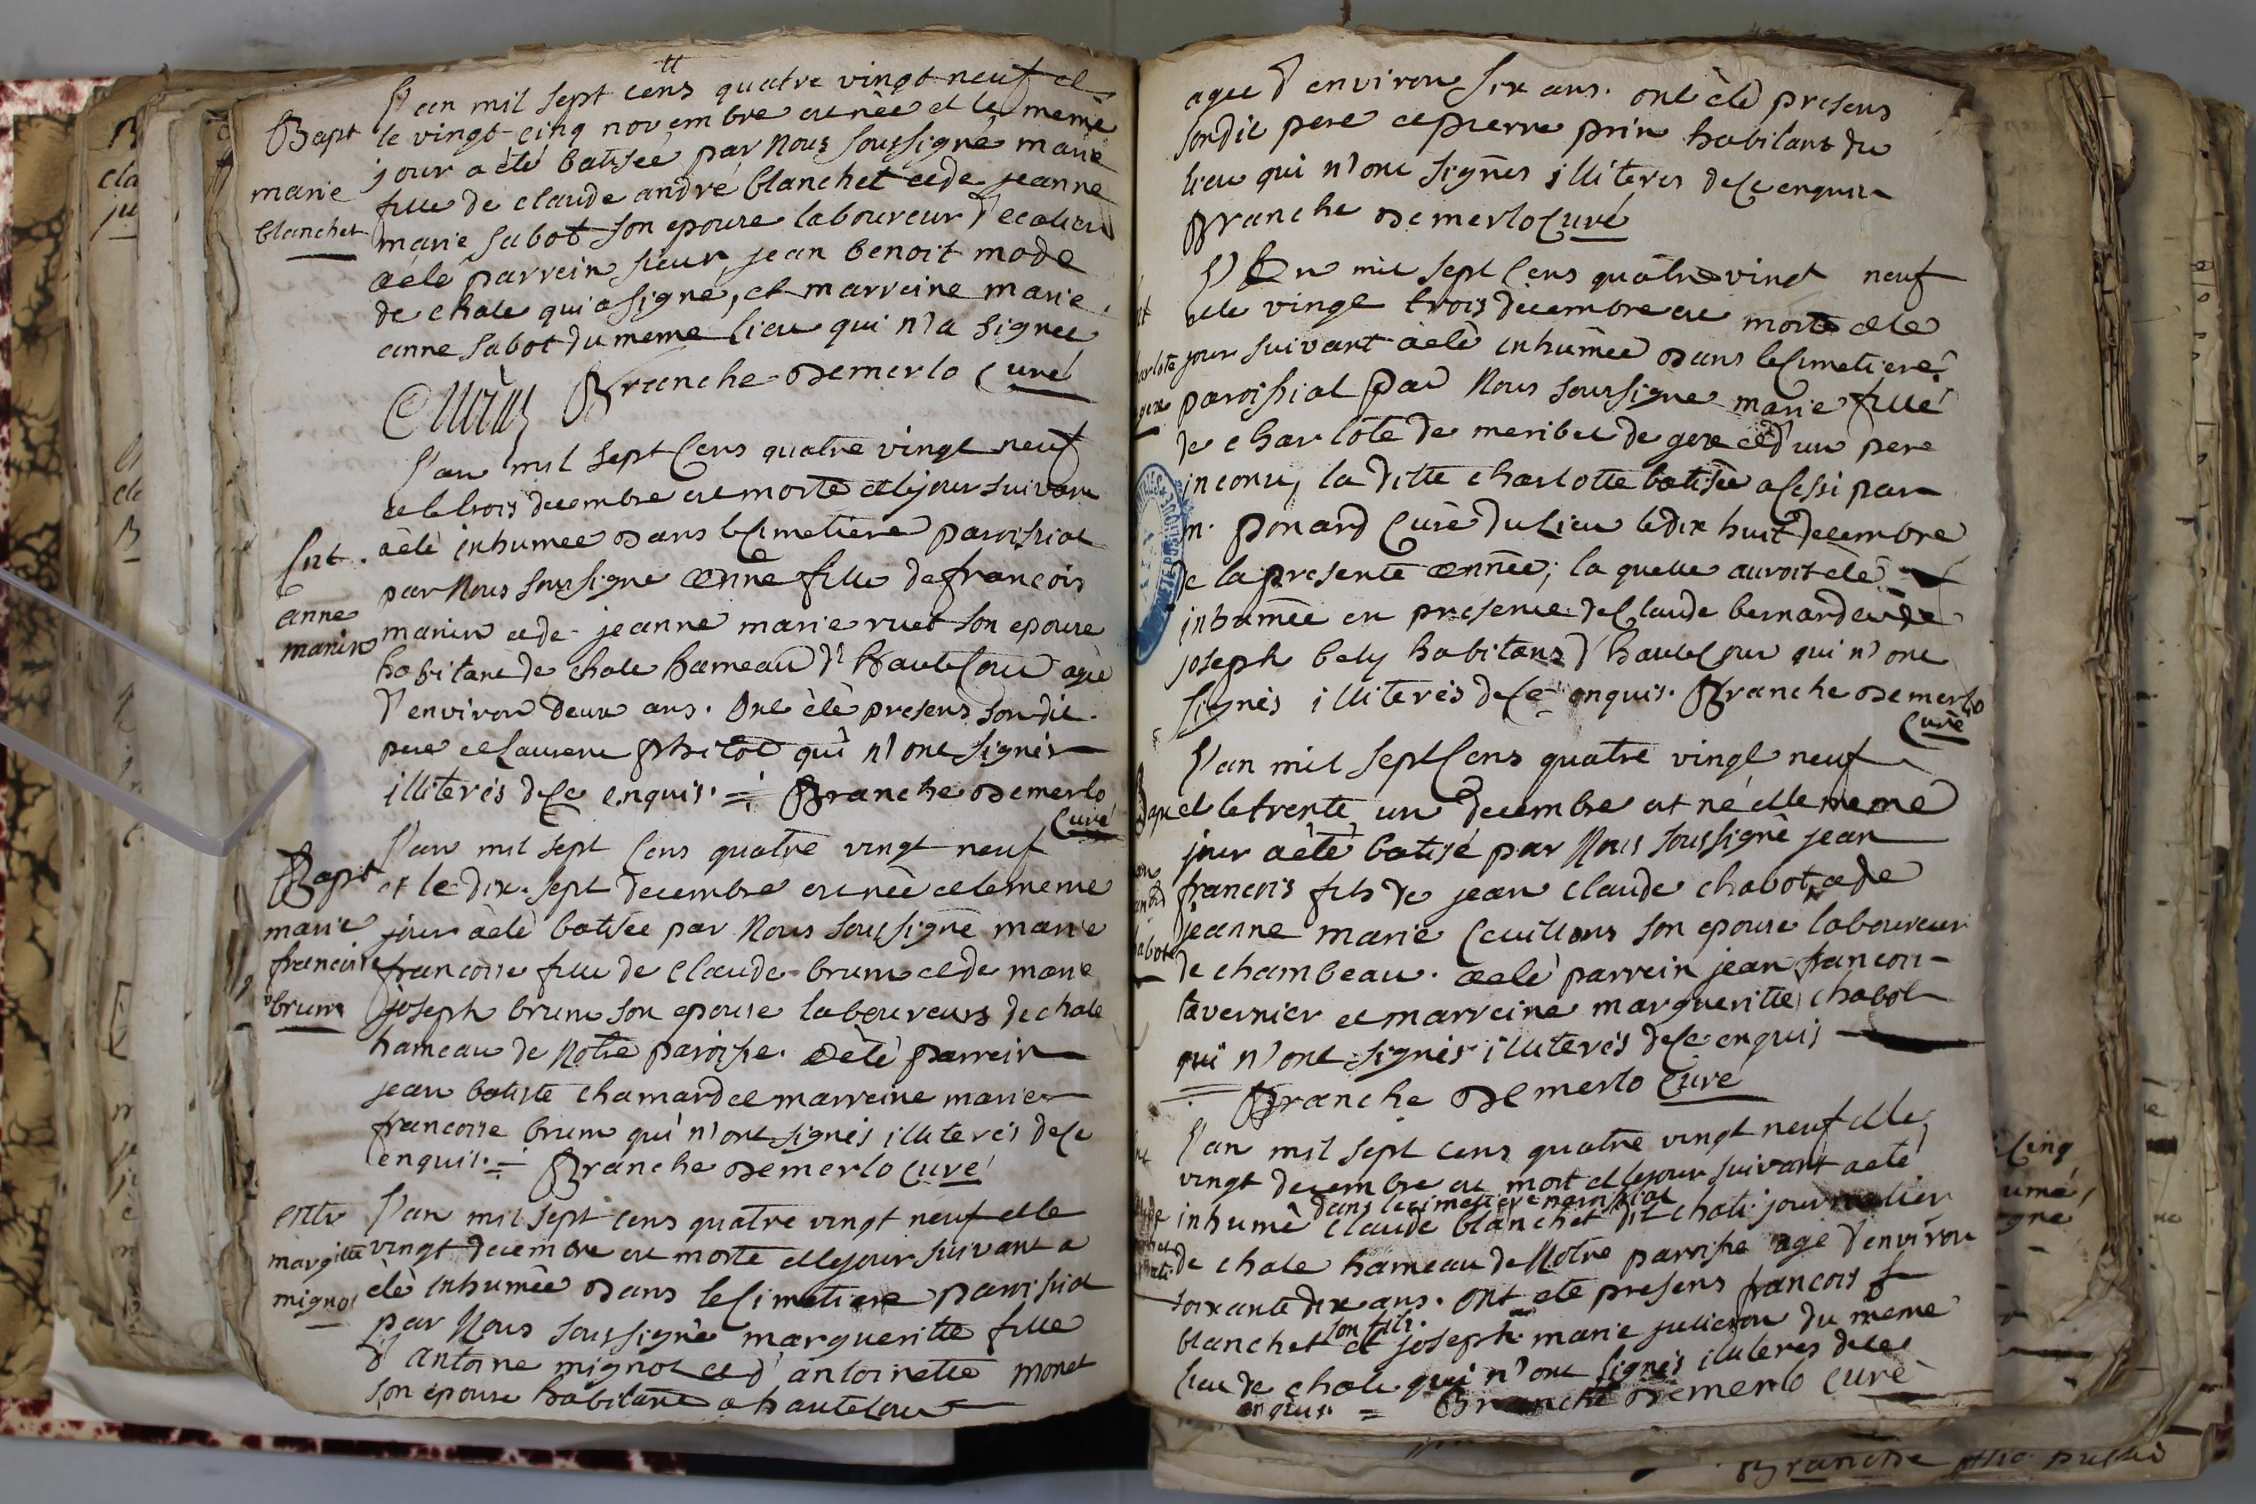 l'an mil sept cens quatre vingt neuf et
Bapt
le vingt-cinq novembre est née et le meme
jour a été batisée par Nous soussigné marie
marie
fille de claude andré blanchet et de jeanne
blanchet
marie sabot son epouse laboureur
a été parrein sieur jean benoit mode
de chale qui a signé, et marreine marie
anne sabot du meme lieu qui n'a signée
Branche Demerlo Curé
l'an mil sept Cens quatre vingt neuf
et le trois decembre est morte et le jour suivant
Ent.
a été inhumee Dans le Cimetiere paroissial
par Nous soussigné anne fille de francois
anne
manin
manin et de jeanne marie ruet son epouse
habitant de chale hameau d'hautecour agée
d'environ deux ans. Ont été presens son dit
pere et Laurent philod qui n'ont signés
illiterés de Ce enquis. = Branche Demerlo
Curé
l'an mil sept Cens quatre vingt neuf
Bapt
et le dix-sept decembre est née et le meme
marie
jour a été batisée par Nous soussigné marie
francoise
francoise fille de Claude brum et de marie
brum
joseph brum son epouse laboureurs de chale
hameau de Notre paroisse. a été parrein
jean batiste chamard et marreine marie
francoise brum qui n'ont signés illiterés de Ce
enquis. = Branche Demerlo Curé
entr
l'an mil sept cens quatre vingt neuf et le
margtte
vingt decembre est morte et le jour suivant a
mignot
été inhumée Dans le Cimetiere paroissial
par Nous soussigné margueritte fille
d'antoine mignot et d'antoinette monet
son epouse habitans a hautecour
agée d'environ six ans. ont été presens
son dit pere et pierre prin habitans du
lieu qui n'ont signés illiterés de Ce enquis
Branche Demerlo Curé
l'an mil sept Cens quatre vingt neuf
et le vingt trois decembre est morte et le
jour suivant a été inhumée Dans le Cimetiere
paroissial par Nous soussigné marie fille
de charlote de meribel de gex et d'un pere
inconu, la ditte charlotte batisée a Cessi par
m. ponard Curé du Lieu le dix huit decembre
de la presente année; la quelle auroit été
inhumée en presence de Claude bernard et de
joseph bely habitans d'hautecour qui n'ont
signés illiterés de Ce enquis. Branche Demerlo
Curé
l'an mil sept Cens quatre vingt neuf
et le trente un decembre est né et le meme
jour a été batisé par Nous soussigné jean
francois fils de jean claude chabot et de
jeanne marie son epouse laboureur
de chambeau. a été parrein jean francois
tavernier et marreine margueritte chabot
qui n'ont signés illiterés de Ce enquis
Branche Demerlo Curé
l'an mil sept cens quatre vingt neuf et le
vingt decembre est mort et le jour suivant a été
dans le cimetiere paroissial
inhumé claude blanchet dit chati journalier
de chale hameau de Notre paroisse agé d'environ
soixante dix ans. ont été presens francois
son fils.
blanchet et joseph marie julieron du meme
lieu de chale qui n'ont signés illiteres de Ce
enquis. = Branche Demerlo Curé